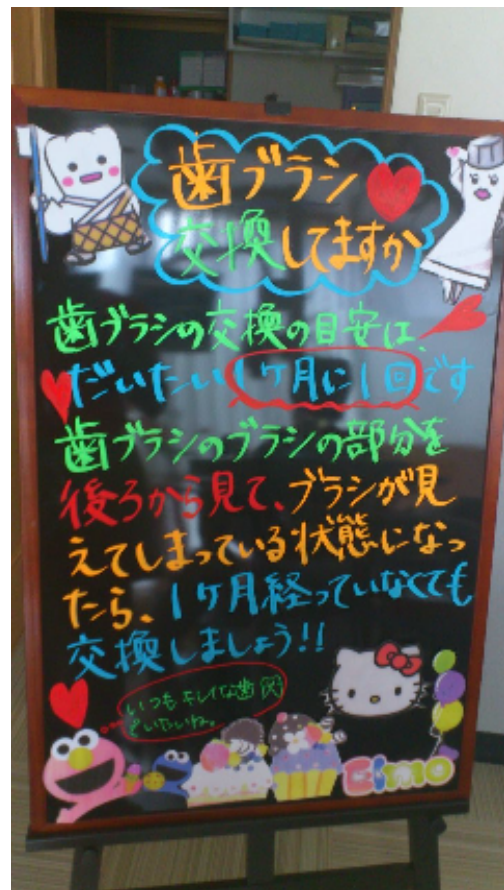 歯ブラシ
交換してますか
歯ブラシの交換の目安は、
だいたい1ヶ月に1回です
歯ブラシのブラシの部分を
後ろから見て、ブラシが見
えてしまっている状態になっ
たら、1ヶ月経っていなくても
交換しましょう!!
いつもキレイな歯
でいたいね。
Elmo